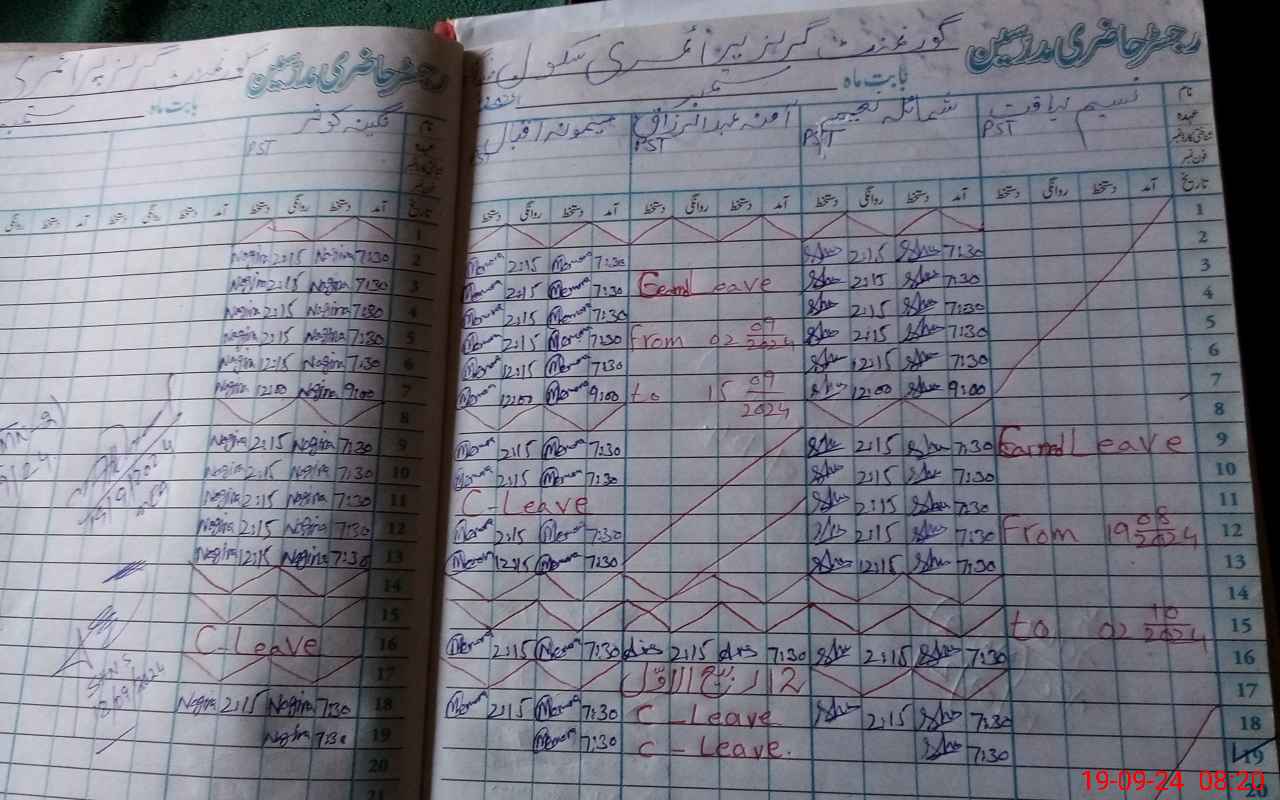 رجسٹر حاضری مدرسین
گورنمنٹ گرلز پرائمری سکول
بابت ماہ ستمبر
نام نسیم لیاقت شمائلہ آمنہ عبدالرزاق میمونہ اقبال
عہدہ PST PST PST PST
فون نمبر
تاریخ آمد دستخط روانگی دستخط آمد دستخط روانگی دستخط آمد دستخط روانگی دستخط آمد دستخط روانگی دستخط
1
2 7:30 Shu 2:15 Shu 7:30 Memona 2:15 Memona
3 7:30 Shu 2:15 Shu Earned Leave 7:30 Memona 2:15 Memona
4 7:30 Shu 2:15 Shu 7:30 Memona 2:15 Memona
5 7:30 Shu 2:15 Shu From 02 09/2024 7:30 Memona 2:15 Memona
6 7:30 Shu 12:15 Shu 7:30 Memona 12:15 Memona
7 9:00 Shu 12:00 Shu to 15 09/2024 9:00 Memona 12:00 Memona
8
9 Earned Leave 7:30 Shu 2:15 Shu 7:30 Memona 2:15 Memona
10 7:30 Shu 2:15 Shu 7:30 Memona 2:15 Memona
11 7:30 Shu 2:15 Shu C-Leave
12 From 19 08/2024 7:30 Shu 2:15 Shu 7:30 Memona 2:15 Memona
13 7:30 Shu 12:15 Shu 7:30 Memona 12:15 Memona
14
15 to 02 10/2024
16 7:30 Shu 2:15 Shu 7:30 2:15 7:30 Memona 2:15 Memona
17 12 ربیع الاول
18 7:30 Shu 2:15 Shu C-Leave 7:30 Memona 2:15 Memona
19 7:30 Shu C-Leave. 7:30 Memona
20
رجسٹر حاضری مدرسین
گورنمنٹ گرلز پرائمری
بابت ماہ
نام نگینہ کوثر
عہدہ PST
فون نمبر
تاریخ آمد دستخط روانگی دستخط آمد دستخط روانگی دستخط آمد روانگی
1
2 7:30 Nagina 2:15 Nagina
3 7:30 Nagina 2:15 Nagina
4 7:30 Nagina 2:15 Nagina
5 7:30 Nagina 2:15 Nagina
6 7:30 Nagina 12:15 Nagina
7 9:00 Nagina 12:00 Nagina
8
9 7:30 Nagina 2:15 Nagina
10 7:30 Nagina 2:15 Nagina
11 7:30 Nagina 2:15 Nagina
12 7:30 Nagina 2:15 Nagina
13 7:30 Nagina 12:15 Nagina
14
15
16 C-Leave
17
18 7:30 Nagina 2:15 Nagina
19 7:30 Nagina
20
21
19-09-24 08:20